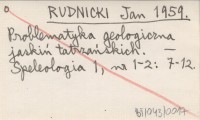 RUDNICKI Jan 1959.
Problematyka geologiczna
jaskiń tatrzańskich. —
Speleologia 1, no 1-2: 7-12.
BI/043/0017